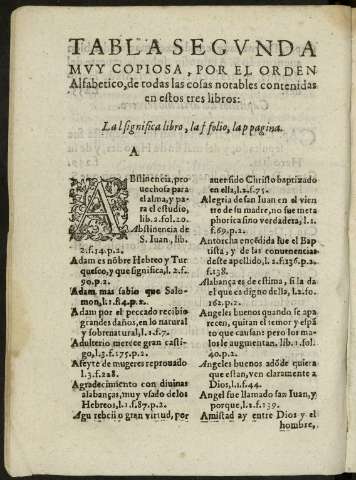 TABLA SEGVNDA
MVY COPIOSA, POR EL ORDEN
Alfabetico, de todas las cosas notables contenidas
en estos tres libros:
La l significa libro, la f folio, la p pagina.
A
ABstinencia, pro
uechosa para
el alma, y pa
ra el estudio,
lib. 2. fol. 20.
Abstinencia de
S. Iuan, lib.
2. f. 14. p. 2.
Adam es nõbre Hebreo y Tur
quesco, y que significa, l. 2. f.
90. p. 2.
Adam mas sabio que Salo-
mon, l. 1. f. 4. p. 2.
Adam por el peccado recibio
grandes daños, en lo natural
y sobrenatural, l. 1. f. 7.
Adulterio merece gran casti-
go, l. 3. f. 175. p. 2.
Afeyte de mugeres reprouado
l. 3. f. 228.
Agradecimiento con diuinas
alabanças, muy vsado de los
Hebreos, l. 1. f. 87. p. 2.
gran virtud, por
auer sido Christo baptizado
en ella, l. 2. f. 75.
Alegria de san Iuan en el vien
tre de su madre, no fue meta
phorica sino verdadera, l. 1.
f. 69. p. 2.
Antorcha encẽdida fue el Bap
tista, y de las conuenencias
deste apellido, l. 2. f. 136. p. 2.
f. 138.
Alabança es de estima, si la da
el que es digno della, l. 2. fo.
162. p. 2.
Angeles buenos quando se apa
recen, quitan el temor y espã
to que causan: pero los ma-
los le augmentan. lib. 1. fol.
40. p. 2.
Angeles buenos adõde quiera
que estan, ven claramente a
Dios, l. 1. f. 44.
Angel fue llamado san Iuan, y
porque, l. 1. f. 139.
Amistad ay entre Dios y el
hombre,